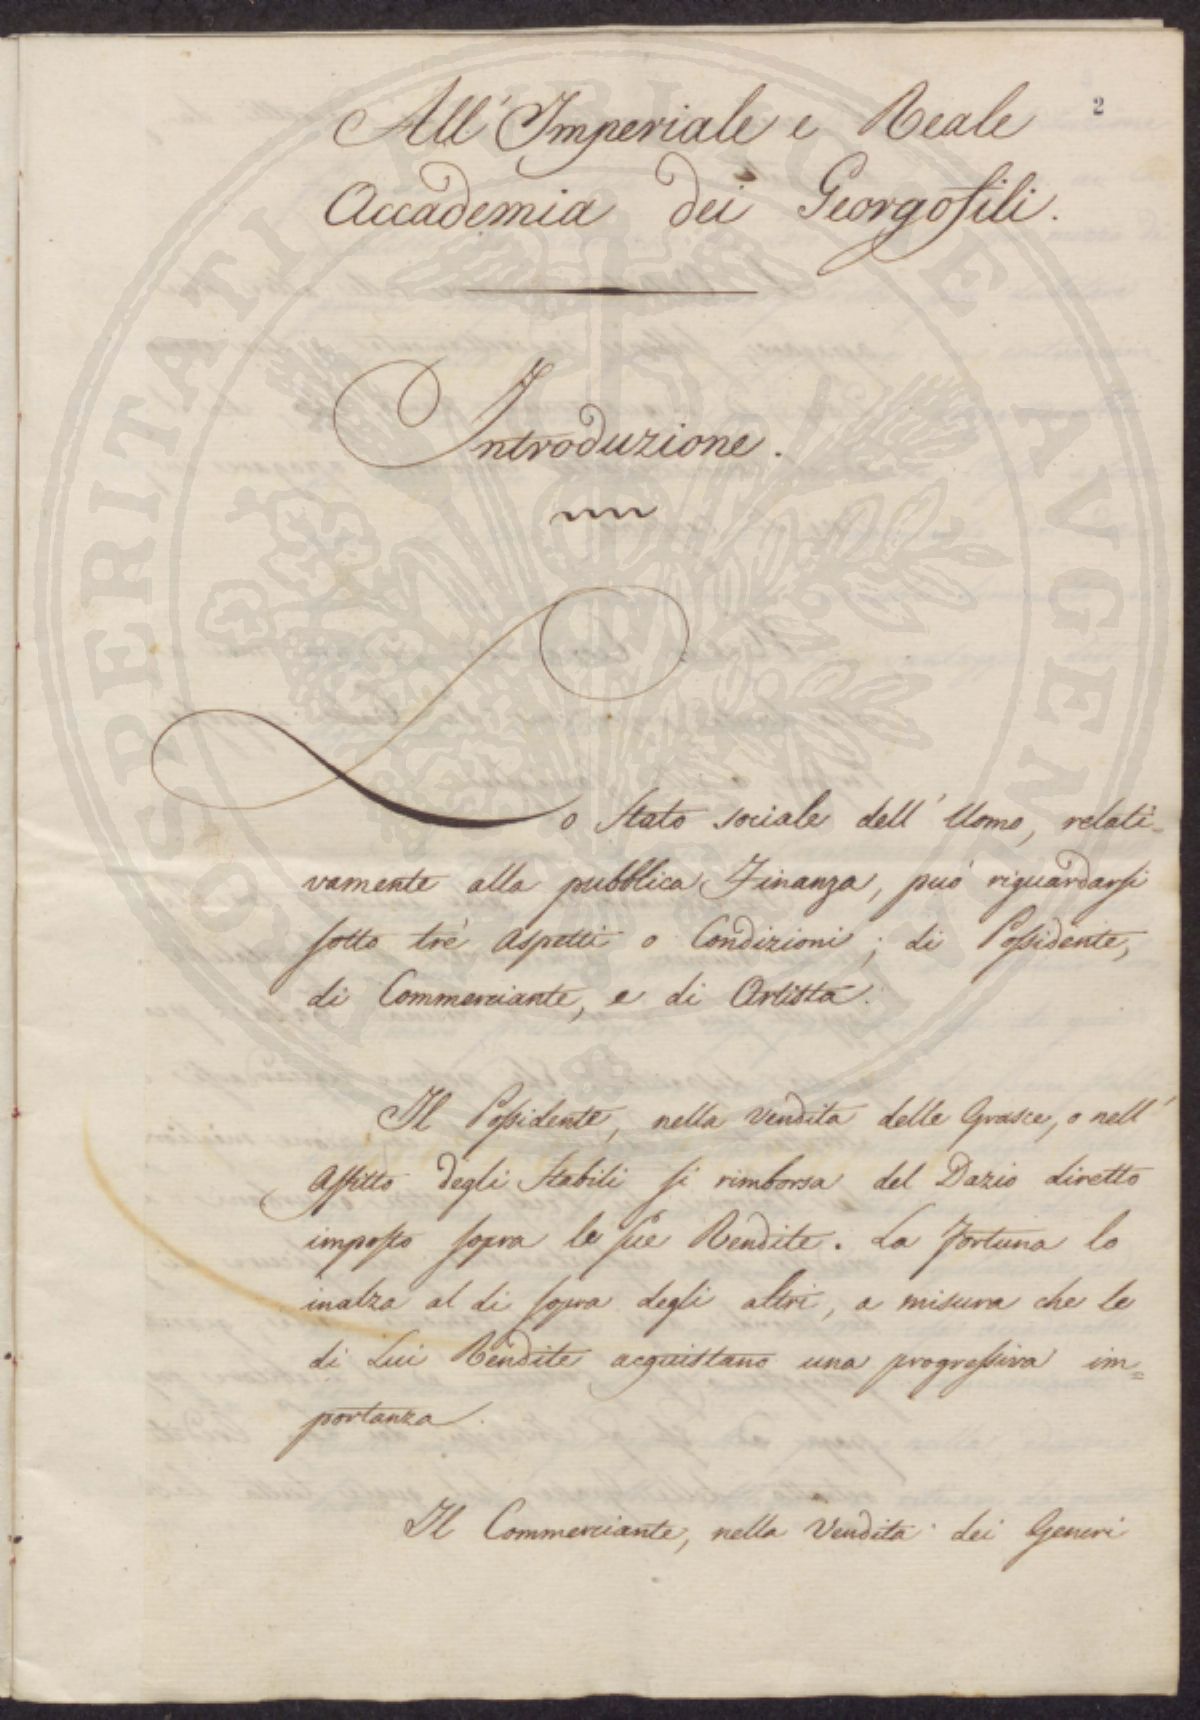 2
All' Imperiale e Reale
Accademia dei Georgofili.
Introduzione.
Lo Stato sociale dell' Uomo, relati=
vamente alla pubblica Finanza, può riguardarsi
sotto trè aspetti o Condizioni; di Possidente,
di Commerciante, e di Artista.
Il Possidente, nella vendita delle Grasce, o nell'
Affitto degli Stabili si rimborsa del Dazio diretto
imposto sopra le sue Rendite. La Fortuna lo
inalza al di sopra degli altri, a misura che le
di Lui Rendite acquistano una progressiva im=
portanza.
Il Commerciante, nella Vendita dei Generi
PROSPERITATI PUBLICAE AUGENDAE